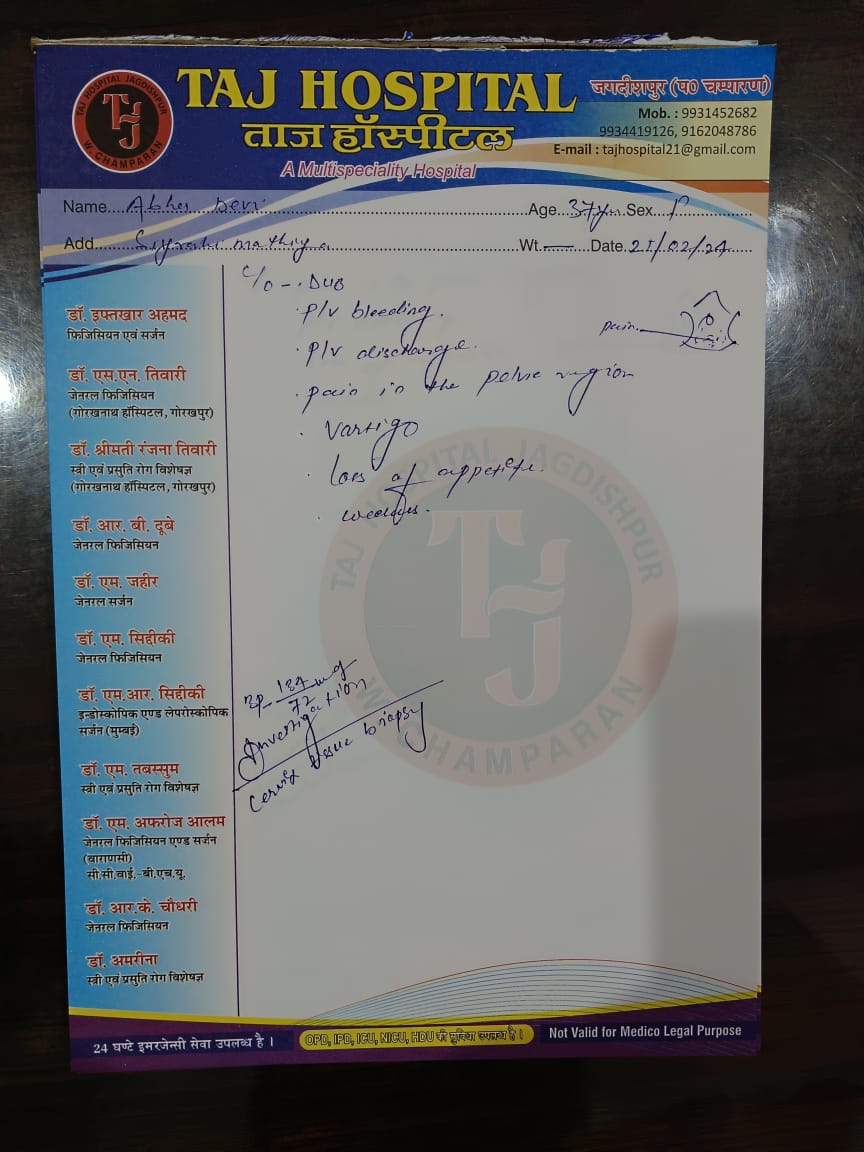 TAJ HOSPITAL JAGDISHPUR
THJ
W. CHAMPARAN
TAJ HOSPITAL
ताज हॉस्पीटल
A Multispeciality Hospital
जगदीशपुर (प० चम्पारण)
Mob. : 9931452682
9934419126, 9162048786
E-mail : tajhospital21@gmail.com
Name Devi Age 37 Yr Sex F
Add Wt. — Date
C/O - . DUB
. P/V bleeding.
. P/V discharge.
. pain in the pelvic region
pain
. Vartigo
. loss of appetite.
डॉ. इफ्तखार अहमद
फिजिसियन एवं सर्जन
डॉ. एस.एन. तिवारी
जेनरल फिजिसियन
(गोरखनाथ हॉस्पिटल, गोरखपुर)
डॉ. श्रीमती रंजना तिवारी
स्त्री एवं प्रसुति रोग विशेषज्ञ
(गोरखनाथ हॉस्पिटल, गोरखपुर)
डॉ. आर. बी. दूबे
जेनरल फिजिसियन
डॉ. एम. जहीर
जेनरल सर्जन
डॉ. एम. सिद्दीकी
जेनरल फिजिसियन
डॉ. एम.आर. सिद्दीकी
इन्डोस्कोपिक एण्ड लेपरोस्कोपिक
सर्जन (मुम्बई)
डॉ. एम. तबस्सुम
स्त्री एवं प्रसुति रोग विशेषज्ञ
डॉ. एम. अफरोज आलम
जेनरल फिजिसियन एण्ड सर्जन
(वाराणसी)
सी.सी.वाई.-बी.एच.यू.
डॉ. आर.के. चौधरी
जेनरल फिजिसियन
डॉ. अमरीना
स्त्री एवं प्रसुति रोग विशेषज्ञ
BP - 72
Investigation
Cervix tissue biopsy
TAJ HOSPITAL JAGDISHPUR
THJ
W. CHAMPARAN
24 घण्टे इमरजेन्सी सेवा उपलब्ध है ।
OPD, IPD, ICU, NICU, HDU की सुविधा उपलब्ध है ।
Not Valid for Medico Legal Purpose